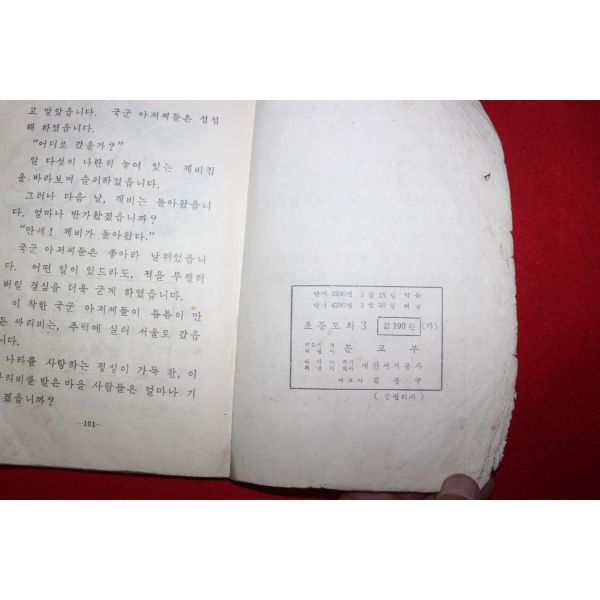 고 말았읍니다. 국군 아저씨들은 섭섭
해 하였읍니다.
"어디로 갔을까?"
알 다섯이 나란히 놓여 있는 제비집
을 바라보며 슬퍼하였읍니다.
그러나 다음 날, 제비는 돌아왔읍니
다. 얼마나 반가왔겠읍니까?
"만세! 제비가 돌아왔다."
국군 아저씨들은 좋아라 날뛰었읍니
다. 어떤 일이 있드라도, 적을 무찔러
버릴 결심을 더욱 굳게 하였읍니다.
이 착한 국군 아저씨들이 틈틈이 만
든 싸리비는, 추럭에 실려 서울로 갔읍
나라를 사랑하는 정성이 가득 찬, 이
싸리비를 받은 마을 사람들은 얼마나 기
겠읍니까?
—101—
단기 4290년 3월 15일 박음
단기 4290년 3월 20일 펴냄
초등도의 3 값 190환 (가)
문교부
대한서적공사
대표자 김
(삼립제사)